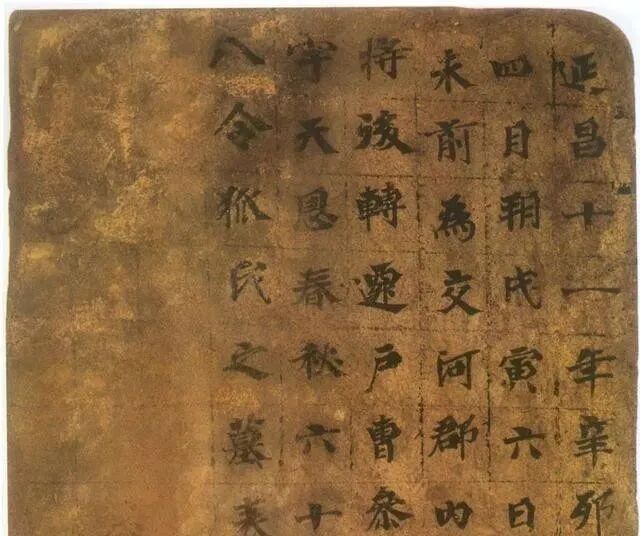 延昌十一年辛卯
四月朔戊寅六日
未前為交河郡內
将後轉遷户曹參
字天恩春秋六十
人令狐氏之墓表